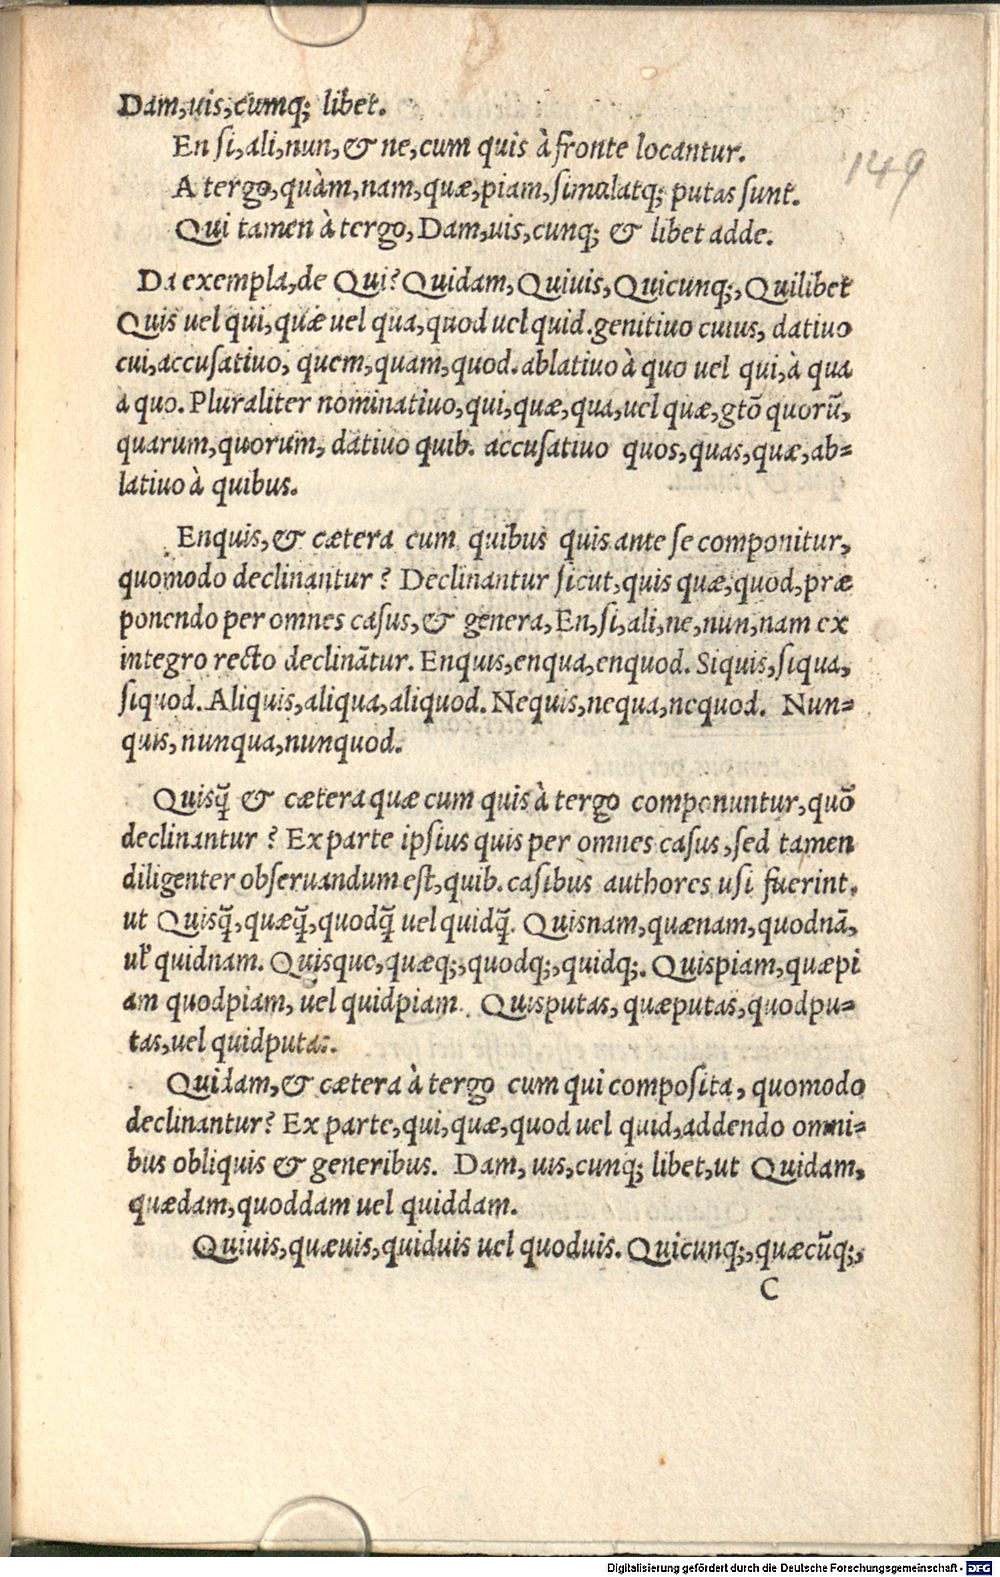 Dam,uis,cumq; libet.
149
En si,ali,nun,& ne,cum quis à fronte locantur.
A tergo,quàm,nam,quæ,piam,simulatq; putas sunt.
Qui tamen à tergo, Dam,uis,cunq; & libet adde.
Da exempla,de Qui? Quidam, Quiuis, Quicunq;, Quilibet
Quis uel qui,quæ uel qua,quod uel quid.genitiuo cuius, datiuo
cui,accusatiuo, quem,quam,quod.ablatiuo à quo uel qui,à qua
à quo. Pluraliter nominatiuo,qui,quæ,qua,uel quæ,gtō quorū,
quarum,quorum, datiuo quib. accusatiuo quos,quas,quæ,ab=
latiuo à quibus.
Enquis,& cætera cum quibus quis ante se componitur,
quomodo declinantur? Declinantur sicut,quis quæ,quod,præ
ponendo per omnes casus,& genera,En,si,ali,ne,nun,nam ex
integro recto declinātur. Enquis,enqua,enquod. Siquis,siqua,
siquod. Aliquis,aliqua,aliquod. Nequis,nequa,nequod. Nun=
quis,nunqua,nunquod.
Quisq̃ & cætera quæ cum quis à tergo componuntur,quō
declinantur? Ex parte ipsius quis per omnes casus,sed tamen
diligenter obseruandum est,quib. casibus authores usi fuerint.
ut Quisq̃,quæq̃,quodq̃ uel quidq̃. Quisnam,quænam,quodnā,
ul̓ quidnam. Quisque,quæq;,quodq;,quidq;. Quispiam,quæpi
am quodpiam, uel quidpiam. Quisputas,quæputas,quodpu=
tas,uel quidputas.
Quidam,& cætera à tergo cum qui composita, quomodo
declinantur? Ex parte,qui,quæ,quod uel quid,addendo omni=
bus obliquis & generibus. Dam, uis,cunq; libet,ut Quidam,
quædam,quoddam uel quiddam.
Quiuis,quæuis,quiduis uel quoduis. Quicunq;,quæcūq;,
C
Digitalisierung gefördert durch die Deutsche Forschungsgemeinschaft - DFG